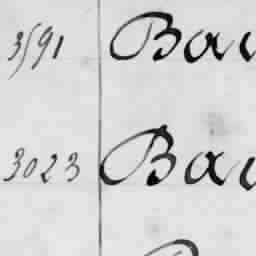 3591 Bai
3023 Bai